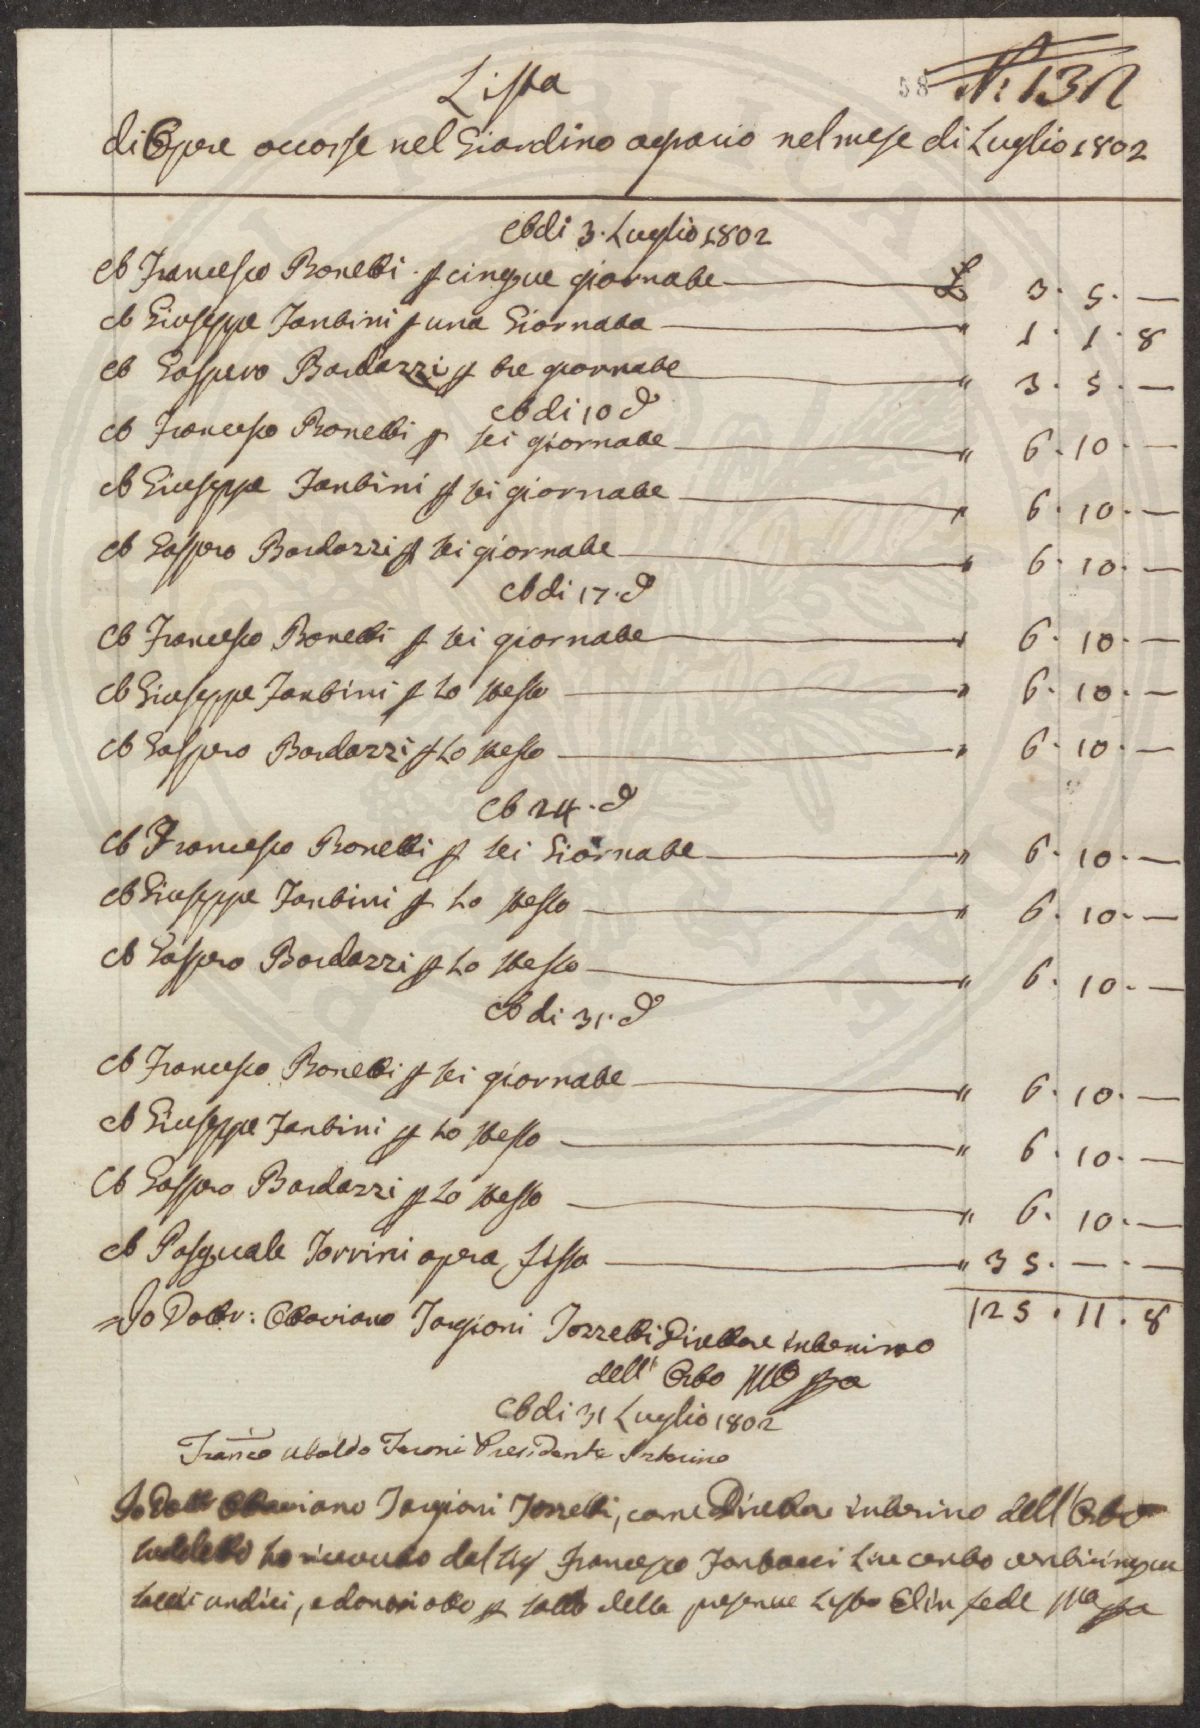 58 N: 132
Lista
di Opere occorse nel Giardino agrario nel mese di Luglio 1802
A di 3. Luglio 1802
A Francesco Bonetti p cinque giornate £ 3. 5. —
A Giuseppe Tantini p una Giornata " 1. 1. 8
A Gaspero Bardazzi p tre giornate " 3. 5. —
A di 10 d
A Francesco Bonetti p sei giornate " 6. 10. —
A Giuseppe Tantini p sei giornate " 6. 10. —
A Gaspero Bardazzi p sei giornate " 6. 10. —
A di 17. d
A Francesco Bonetti p sei giornate " 6. 10. —
A Giuseppe Tantini p Lo stesso " 6. 10. —
A Gaspero Bardazzi p Lo stesso " 6. 10. —
A 24. d
A Francesco Bonetti p sei Giornate " 6. 10. —
A Giuseppe Tantini p Lo stesso " 6. 10. —
A Gaspero Bardazzi p Lo stesso " 6. 10. —
A di 31. d
A Francesco Bonetti p sei giornate " 6. 10. —
A Giuseppe Tantini p Lo stesso " 6. 10. —
A Gaspero Bardazzi p Lo stesso " 6. 10. —
A Pasquale Torrini opera fissa " 35. — . —
125. 11. 8
Io Dottr: Ottaviano Targioni Tozzetti Direttore interino
dell' Orto Mo ppa
A di 31 Luglio 1802
Franco Ubaldo Feroni Presidente Interino
Io Dottr Ottaviano Targioni Tozzetti, come Direttore interino dell' Orto
suddetto ho ricevuto dal Sig Francesco Lire cento venticinque
soldi undici, e danari otto p saldo della presente Lista E in fede Mo ppa